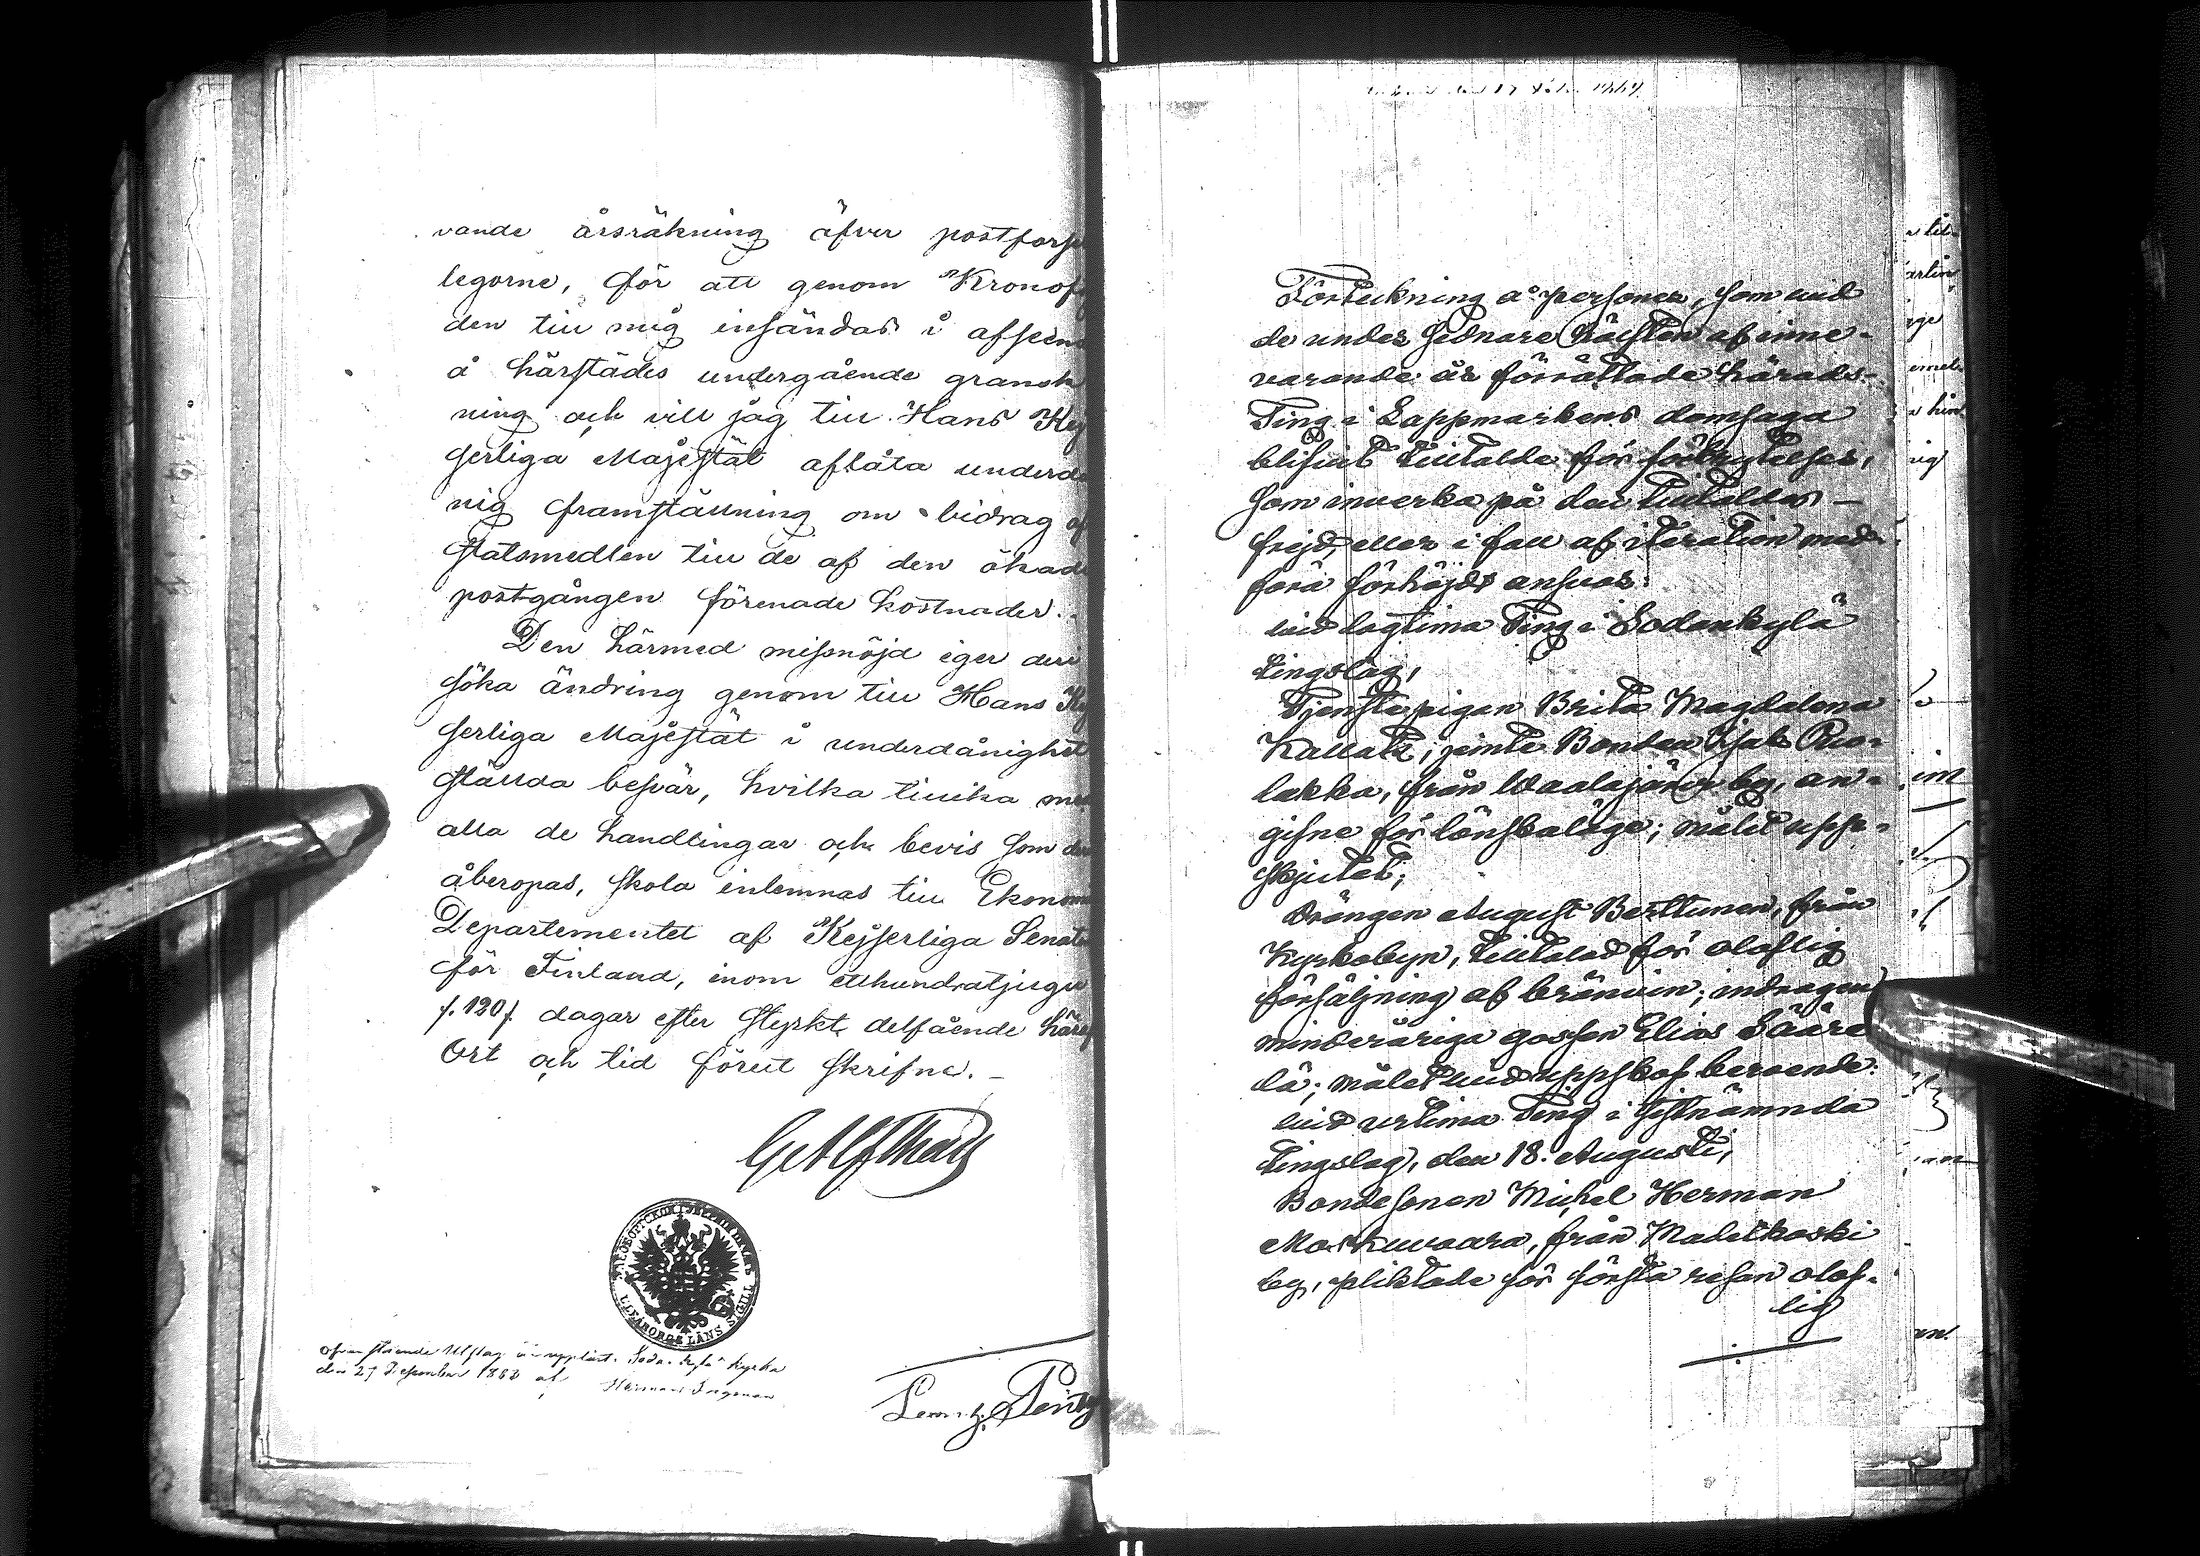 vande årsräkning öfver postforse
legorne, för att genom Kronof
den till mig insändas i afseen
å härstädes undergående gransk
ning och vill jag till Hans Kej
serliga Majestät aflåta underdå
nig framställning om bidrag af
statsmedlen till de af den ökade
postgången förenade kostnader.
Den härmed missnöjd eger deri
söka ändring genom till Hans Kej
serliga Majestät i underdånighet
ställda besvär, hvilka tillika med
alla de handlingar och bevis som der
åberopas, skola inlemnas till Ekonomie
Departementet af Kejserliga Senaten
för Finland, inom etthundratjugu
/.120/. dagar efter styrkt delfående häraf
Ort och tid förut skrifne. —
ULEÅBORGS LÄNS SIGILL
Ofvanstående Utslag är uppläst i Sodankylä kyrka
den 27 December 1868 af
1869
Förteckning å personer, som vid
de under sednare hälften af inne-
varande år förrättade härads-
Ting i Lappmarkens domsaga
blifvit tilltalde för förbrytelser,
som inverka på den tilltaldes
frejd, eller i fall af iteration med-
föra förhöjdt ansvar:
vid lagtima Ting i Sodankylä
tingslag,
Tjenstepigan Brita Magdalena
Kallatz, jemte Bonden Isak Ruo-
lakka, från Waalajärvi by, an-
gifne för lönskaläge; målet upp-
skjutet;
Drängen August Berttunen, från
Kyrkobyn, tilltalad för oloflig
försäljning af bränvin; indragen
minderåriga gossen Elias Sääre
lä; målet vid uppskof beroende:
vid urtima Ting i sistnämnda
tingslag, den 18. Augusti,
Bondesonen Michel Herman
Moskuvaara, från Madetkoski
by, pliktade för första resan olof-
lig